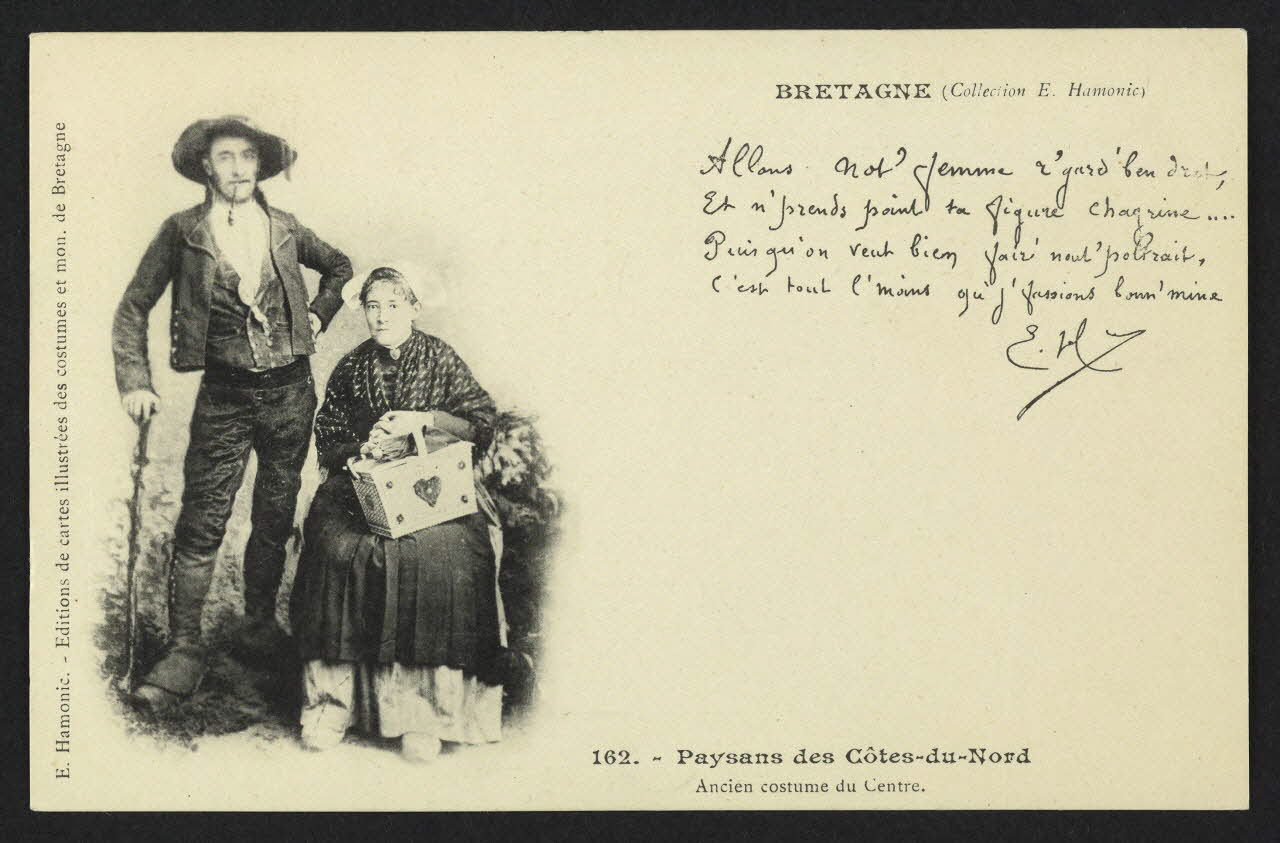 BRETAGNE (Collection E. Hamonic)
Allons Not' femme r'gard' ben dret,
Et n'prends point ta figure chagrine....
Puisqu'on veut bien fair' nout' poltrait,
C'est tout l'moins qu'j'fassions boun' mine
E. H
E. Hamonic. - Editions de cartes illustrées des costumes et mon. de Bretagne
162. - Paysans des Côtes-du-Nord
Ancien costume du Centre.